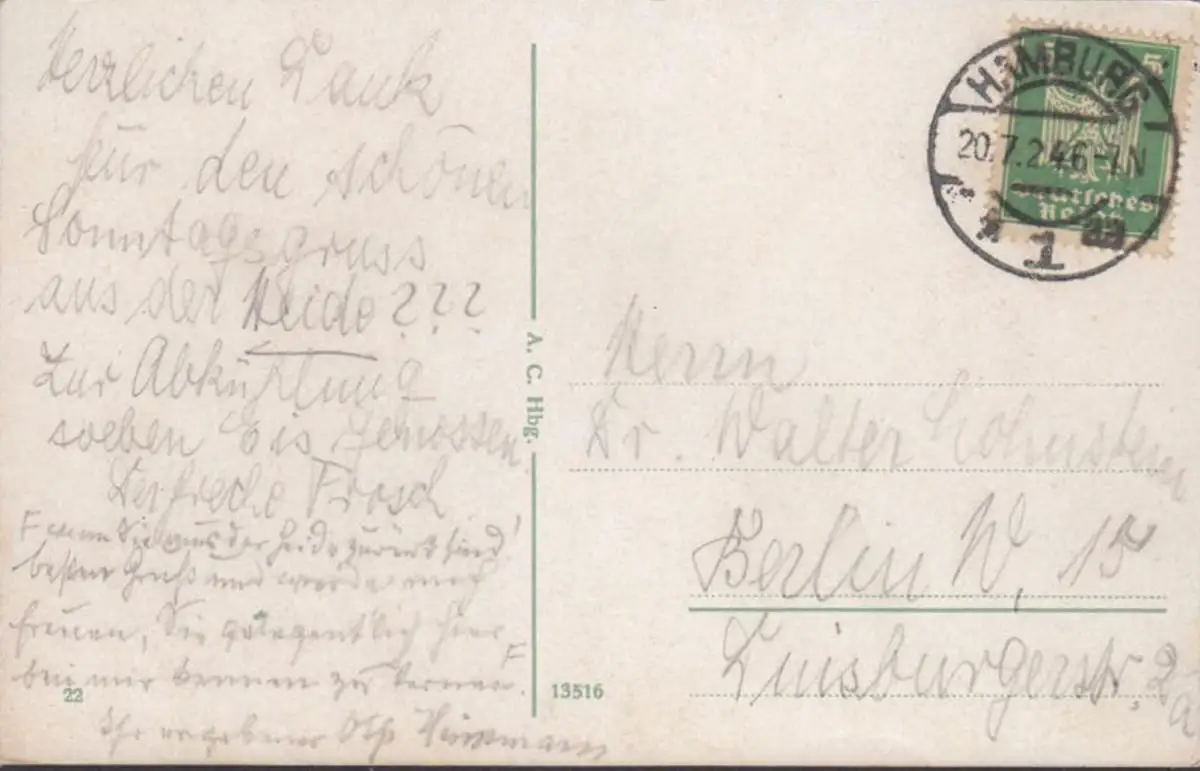 Herzlichen Dank
für den schönen
Sonntagsgruss
aus der Heide???
Zur Abkühlung
soeben Eis genossen.
Der freche Frosch
F wenn Sie aus der Heide zurück sind!
besten Gruß und werde mich
freuen, Sie gelegentlich hier F
bei mir kennen zu lernen.
Ihr ergebener
22
A. C. Hbg.
13516
5 5
Deutsches
Reich
HAMBURG
20.7.24 6-7 N
* 1 aa
Herrn
Dr. Walter Cohnstein
Berlin W. 15
Duisburgerstr. 2a